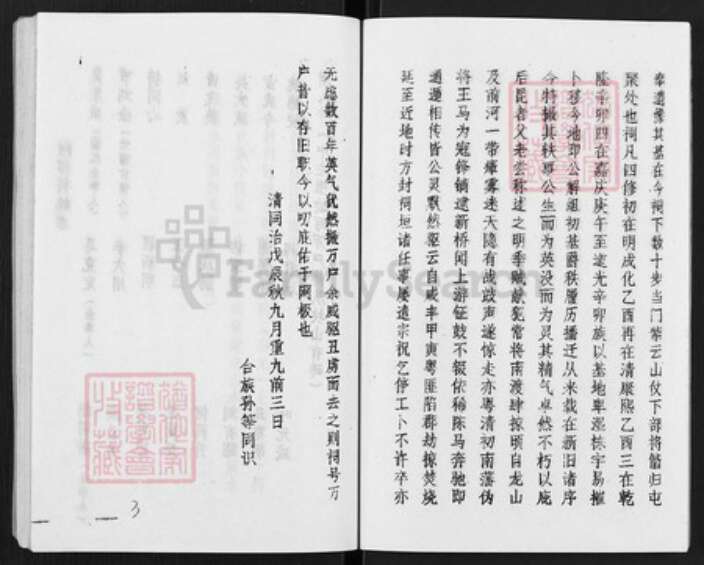 奉遗像其基在今祠下数十步当门紫云山仗下部将笛归屯
聚处也祠凡四修初在明成化乙酉再在清康熙乙酉三在乾
隆辛卯四在嘉庆庚午至道光辛卯族以基地卑湿栋宇易摧
卜移今地即公解组初基爵秩履历播迁从来载在新旧诸序
今特摄其轶耶公生而为英没而为灵其精气卓然不朽以庇
后昆者父老云称述之明季贼献犯常将南渡肆掠顷自龙山
及前河一带瘴雾迷天隐有战鼓声遂惊走亦粤清初南藩伪
将王马为寇锋镝逮新桥闻上游钲鼓不辍依稀陈马奔驰即
遁遁相传皆公灵歘然驱云自咸丰甲寅粤匪陷郡劫掠焚烧
延至近地时方封祠垣诸任事屡遣宗祝乞停工卜不许卒亦
无恙数百年英气犹然撇万户余威驱丑虏而去之则祠号万
户昔以存旧职今以叨庇佑于罔极也
清同治戊辰秋九月重九前三日
合族孙等同识
3
FamilySearch